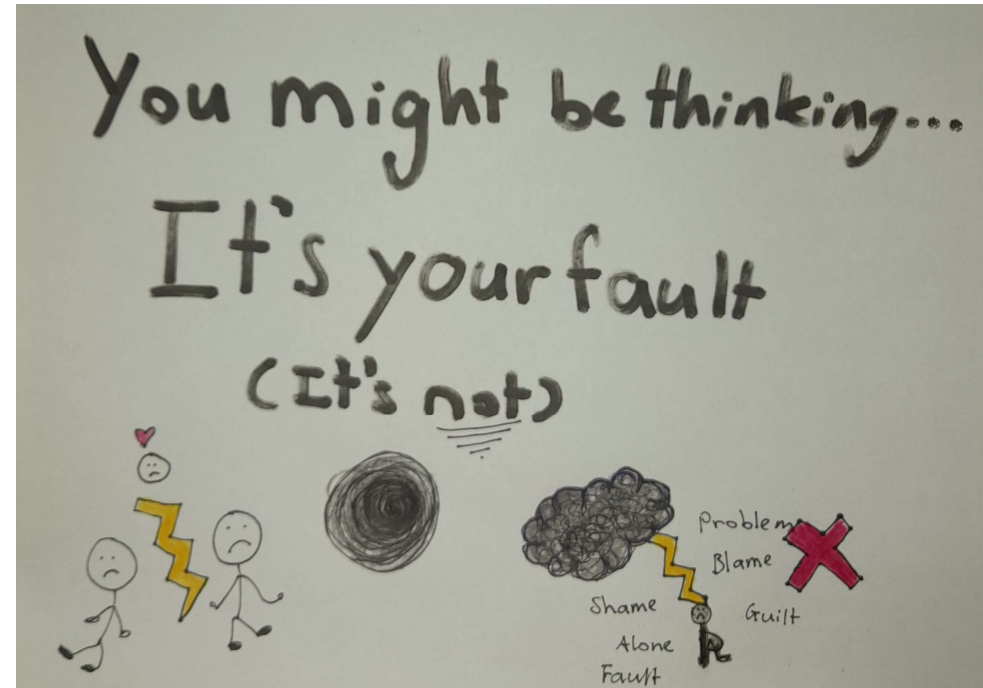 You might be thinking...
It's your fault
(It's not)
Problem
Blame
Shame
Guilt
Alone
Fault